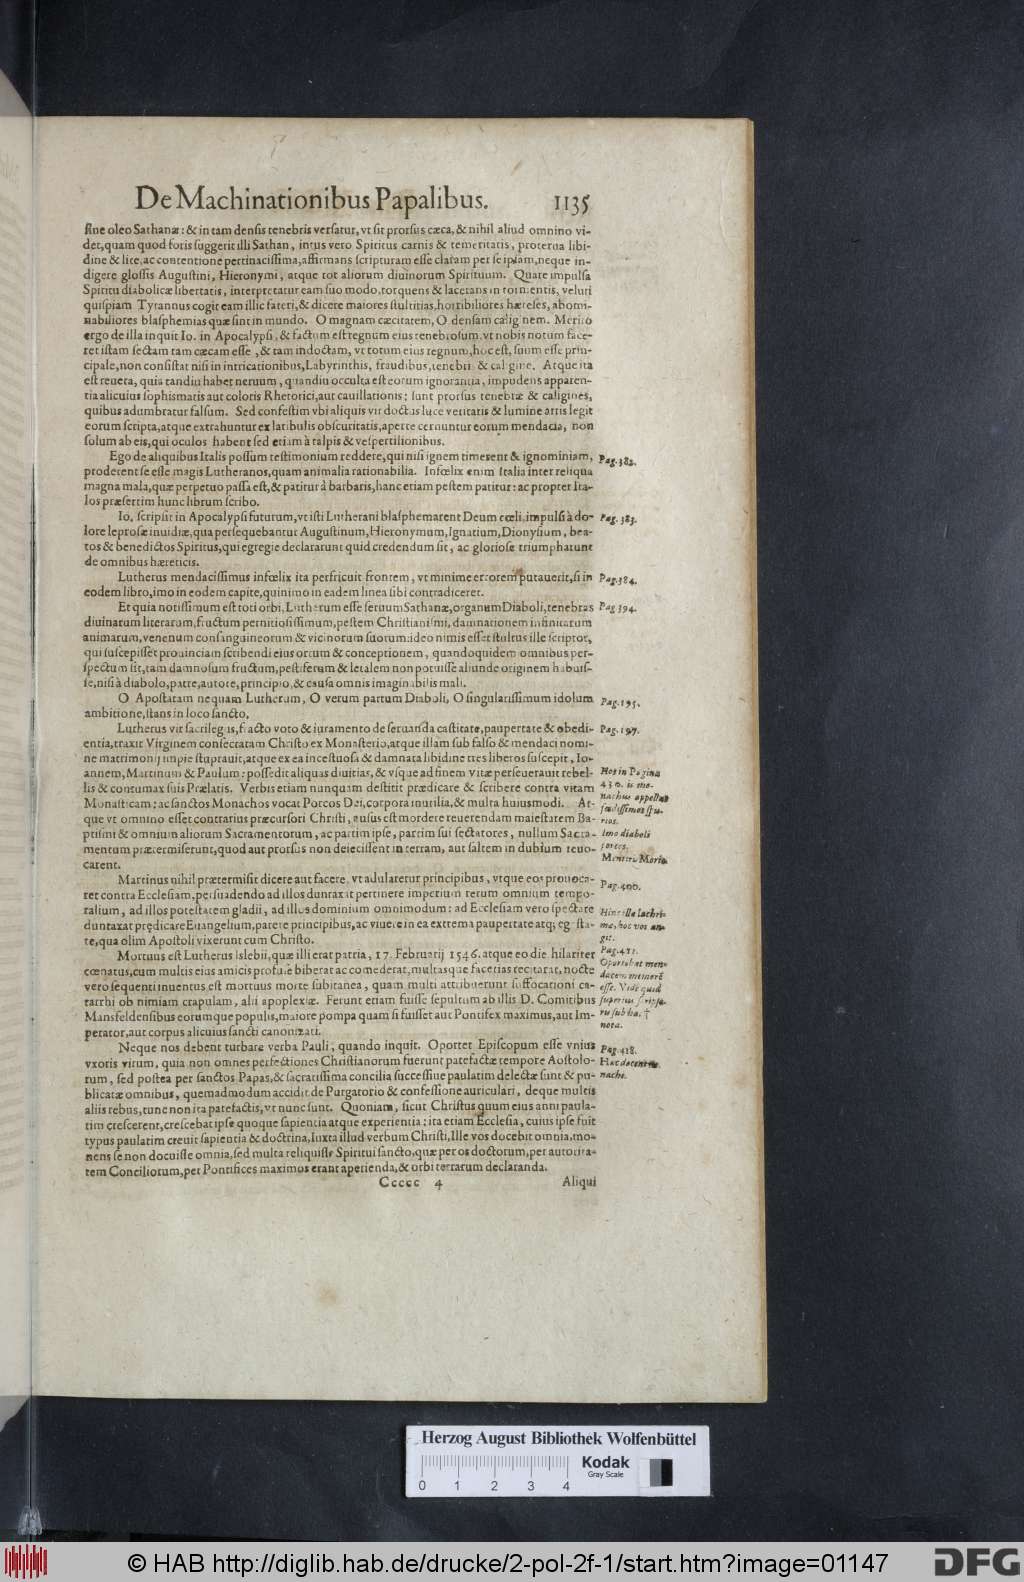 De Machinationibus Papalibus. 1135
sine oleo Sathanæ: & in tam densis tenebris versatur, vt sit prorsus cæca, & nihil aliud omnino vi-
det, quam quod foris suggerit illi Sathan, intus vero Spiritus carnis & temeritatis, proterua libi-
dine & lite, ac contentione pertinacissima, affirmans scripturam esse claram per se ipsam, neque in-
digere glossis Augustini, Hieronymi, atque tot aliorum diuinorum Spirituum. Quare impulsa
Spiritu diabolicæ libertatis, interpretatur eam suo modo, torquens & lacerans in tormentis, veluti
quispiam Tyrannus cogit eam illic fateri, & dicere maiores stultitias, horribiliores hæreses, abomi-
nabiliores blasphemias quæ sint in mundo. O magnam cæcitatem, O densam caliginem. Merito
ergo de illa inquit Io. in Apocalypsi, & factum est regnum eius tenebrosum. vt nobis notum face-
ret istam sectam tam cæcam esse, & tam indoctam, vt totum eius regnum, hoc est, suum esse prin-
cipale, non consistat nisi in intricationibus, Labyrinthis, fraudibus, tenebris & caligine. Atque ita
est reuera, quia tandiu habet neruum, quandiu occulta est eorum ignorantia, impudens apparen-
tia alicuius sophismatis aut coloris Rhetorici, aut cauillationis: sunt prorsus tenebræ & caligines,
quibus adumbratur falsum. Sed confestim vbi aliquis vir doctus luce veritatis & lumine artis legit
eorum scripta, atque extrahuntur ex latibulis obscuritatis, aperte cernuntur eorum mendacia, non
solum ab eis, qui oculos habent sed etiam à talpis & vespertilionibus.
Ego de aliquibus Italis possum testimonium reddere, qui nisi ignem timerent & ignominiam, Pag. 382.
proderent se esse magis Lutheranos, quam animalia rationabilia. Infœlix enim Italia inter reliqua
magna mala, quæ perpetuo passa est, & patitur à barbaris, hanc etiam pestem patitur: ac propter Ita-
los præsertim hunc librum scribo.
Io. scripsit in Apocalypsi futurum, vt isti Lutherani blasphemarent Deum cœli, impulsi à do- Pag. 383.
lore leprosæ inuidiæ, qua persequebantur Augustinum, Hieronymum, Ignatium, Dionysium, bea-
tos & benedictos Spiritus, qui egregie declararunt quid credendum sit, ac gloriose triumpharunt
de omnibus hæreticis.
Lutherus mendacissimus infœlix ita perfricuit frontem, vt minime errorem putauerit, si in Pag. 384.
eodem libro, imo in eodem capite, quinimo in eadem linea sibi contradiceret.
Et quia notissimum est toti orbi, Lutherum esse seruum Sathanæ, organum Diaboli, tenebras Pag 394.
diuinarum literarum, fructum perniciosissimum, pestem Christianismi, damnationem infinitarum
animarum, venenum consanguineorum & vicinorum suorum: ideo nimis esset stultus ille scriptor,
qui suscepisset prouinciam scribendi eius ortum & conceptionem, quandoquidem omnibus per-
spectum sit, tam damnosum fructum, pestiferum & letalem non potuisse aliunde originem habuis-
se, nisi à diabolo, patre, autore, principio, & causa omnis imaginabilis mali.
O Apostatam nequam Lutherum, O verum partum Diaboli, O singularissimum idolum Pag. 395.
ambitione, stans in loco sancto,
Lutherus vir sacrilegus, facto voto & iuramento de seruanda castitate, paupertate & obedi- Pag. 397.
entia, traxit Virginem consecratam Christo ex Monasterio, atque illam sub falso & mendaci nomi-
ne matrimonij impie stuprauit, atque ex ea incestuosa & damnata libidine tres liberos suscepit, Io-
annem, Martinum & Paulum: possedit aliquas diuitias, & vsque ad finem vitæ perseuerauit rebel- Hos in Pagina
lis & contumax suis Prælatis. Verbis etiam nunquam destitit prædicare & scribere contra vitam 430. is mo-
Monasticam: ac sanctos Monachos vocat Porcos Dei, corpora inutilia, & multa huiusmodi. At- nachus appellat
que vt omnino esset contrarius præcursori Christi, ausus est mordere reuerendam maiestatem Ba- fœdissimos spu-
rios.
ptismi & omnium aliorum Sacramentorum, ac partim ipse, partim sui sectatores, nullum Sacra- Imo diaboli
mentum prætermiserunt, quod aut prorsus non deiecissent in terram, aut saltem in dubium reuo- porcos.
carent. Mentiris Moria.
Martinus nihil prætermisit dicere aut facere, vt adularetur principibus, vtque eos prouoca- Pag. 400.
ret contra Ecclesiam, persuadendo ad illos duntaxat pertinere imperium rerum omnium tempo-
ralium, ad illos potestatem gladii, ad illos dominium omnimodum: ad Ecclesiam vero spectare Hinc illæ lachri-
duntaxat prędicare Euangelium, parere principibus, ac viuere in ea extrema paupertate atq; eg sta- mæ, hoc vos an-
te, qua olim Apostoli vixerunt cum Christo. git.
Mortuus est Lutherus Islebii, quæ illi erat patria, 17. Februarij 1546. atque eo die hilariter Pag. 411.
cœnatus, cum multis eius amicis profuse biberat ac comederat, multasque facetias recitarat, nocte Oportebat men-
dacem memorē
vero sequenti inuentus est mortuus morte subitanea, quam multi attribuerunt suffocationi ca- esse. Vide quid
tarrhi ob nimiam crapulam, alii apoplexiæ. Ferunt etiam fuisse sepultum ab illis D. Comitibus superius scripse-
Mansfeldensibus eorumque populis, maiore pompa quam si fuisset aut Pontifex maximus, aut Im- rit sub ha. †
perator, aut corpus alicuius sancti canonizati. nota.
Neque nos debent turbare verba Pauli, quando inquit. Oportet Episcopum esse vnius Pag. 418.
vxoris virum, quia non omnes perfectiones Christianorum fuerunt patefactæ tempore Aostolo- Hæc docent mo-
rum, sed postea per sanctos Papas, & sacratissima concilia successiue paulatim delectæ sunt & pu- nachi.
blicatæ omnibus, quemadmodum accidit de Purgatorio & confessione auriculari, deque multis
aliis rebus, tunc non ita patefactis, vt nunc sunt. Quoniam, sicut Christus quum eius anni paula-
tim crescerent, crescebat ipse quoque sapientia atque experientia: ita etiam Ecclesia, cuius ipse fuit
typus paulatim creuit sapientia & doctrina, Iuxta illud verbum Christi, Ille vos docebit omnia, mo-
nens se non docuisse omnia, sed multa reliquisse Spiritui sancto, quæ per os doctorum, per autorita-
tem Conciliorum, per Pontifices maximos erant aperienda, & orbi terrarum declaranda.
Ccccc 4 Aliqui
Herzog August Bibliothek Wolfenbüttel
Kodak
Gray Scale
0 1 2 3 4
© HAB http://diglib.hab.de/drucke/2-pol-2f-1/start.htm?image=01147
DFG